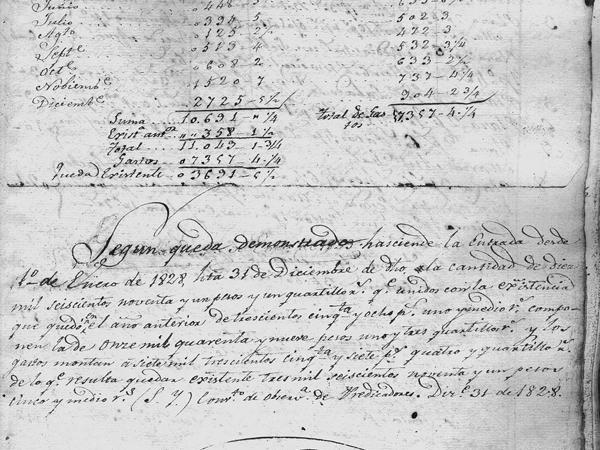 Junio 0448
Julio 0334 5 502 3
Agto 0125 2½ 472 3
Septe 0513 4 532 3¼
Octe 0608 2 633 2½
Nobiembe 1520 7 737 4¼
Diciembe 2725-5½ 904 2¾
Suma 10.691-"¼ Total de Gas
tos 7357-4.¼
Existª antª "358-1½
Total 11.049-1-¾
Gastos 07357-4.¼
Queda Existente 03691-5½
Segun queda demonstrado, hasciende la Entrada desde
1º de Enero de 1828 hta 31 de Diciembre de dho a la cantidad de diez
mil seiscientos noventa y un pesos y un quartillo rs. qe unidos con la existencia
que quedó en el año anterior de trescientos cinqta y ocho ps. uno y medio rs. compo-
nen la de onze mil quarenta y nueve pesos uno y tres quartillos rs. y los
gastos montan a siete mil trescientos cinqta y siete ps quatro y quartillo rs.
de lo qe resulta quedar existente tres mil seiscientos noventa y un pesos
cinco y medio rs (S. Y.) Convto de Observa de Predicadores. Dice 31 de 1828.